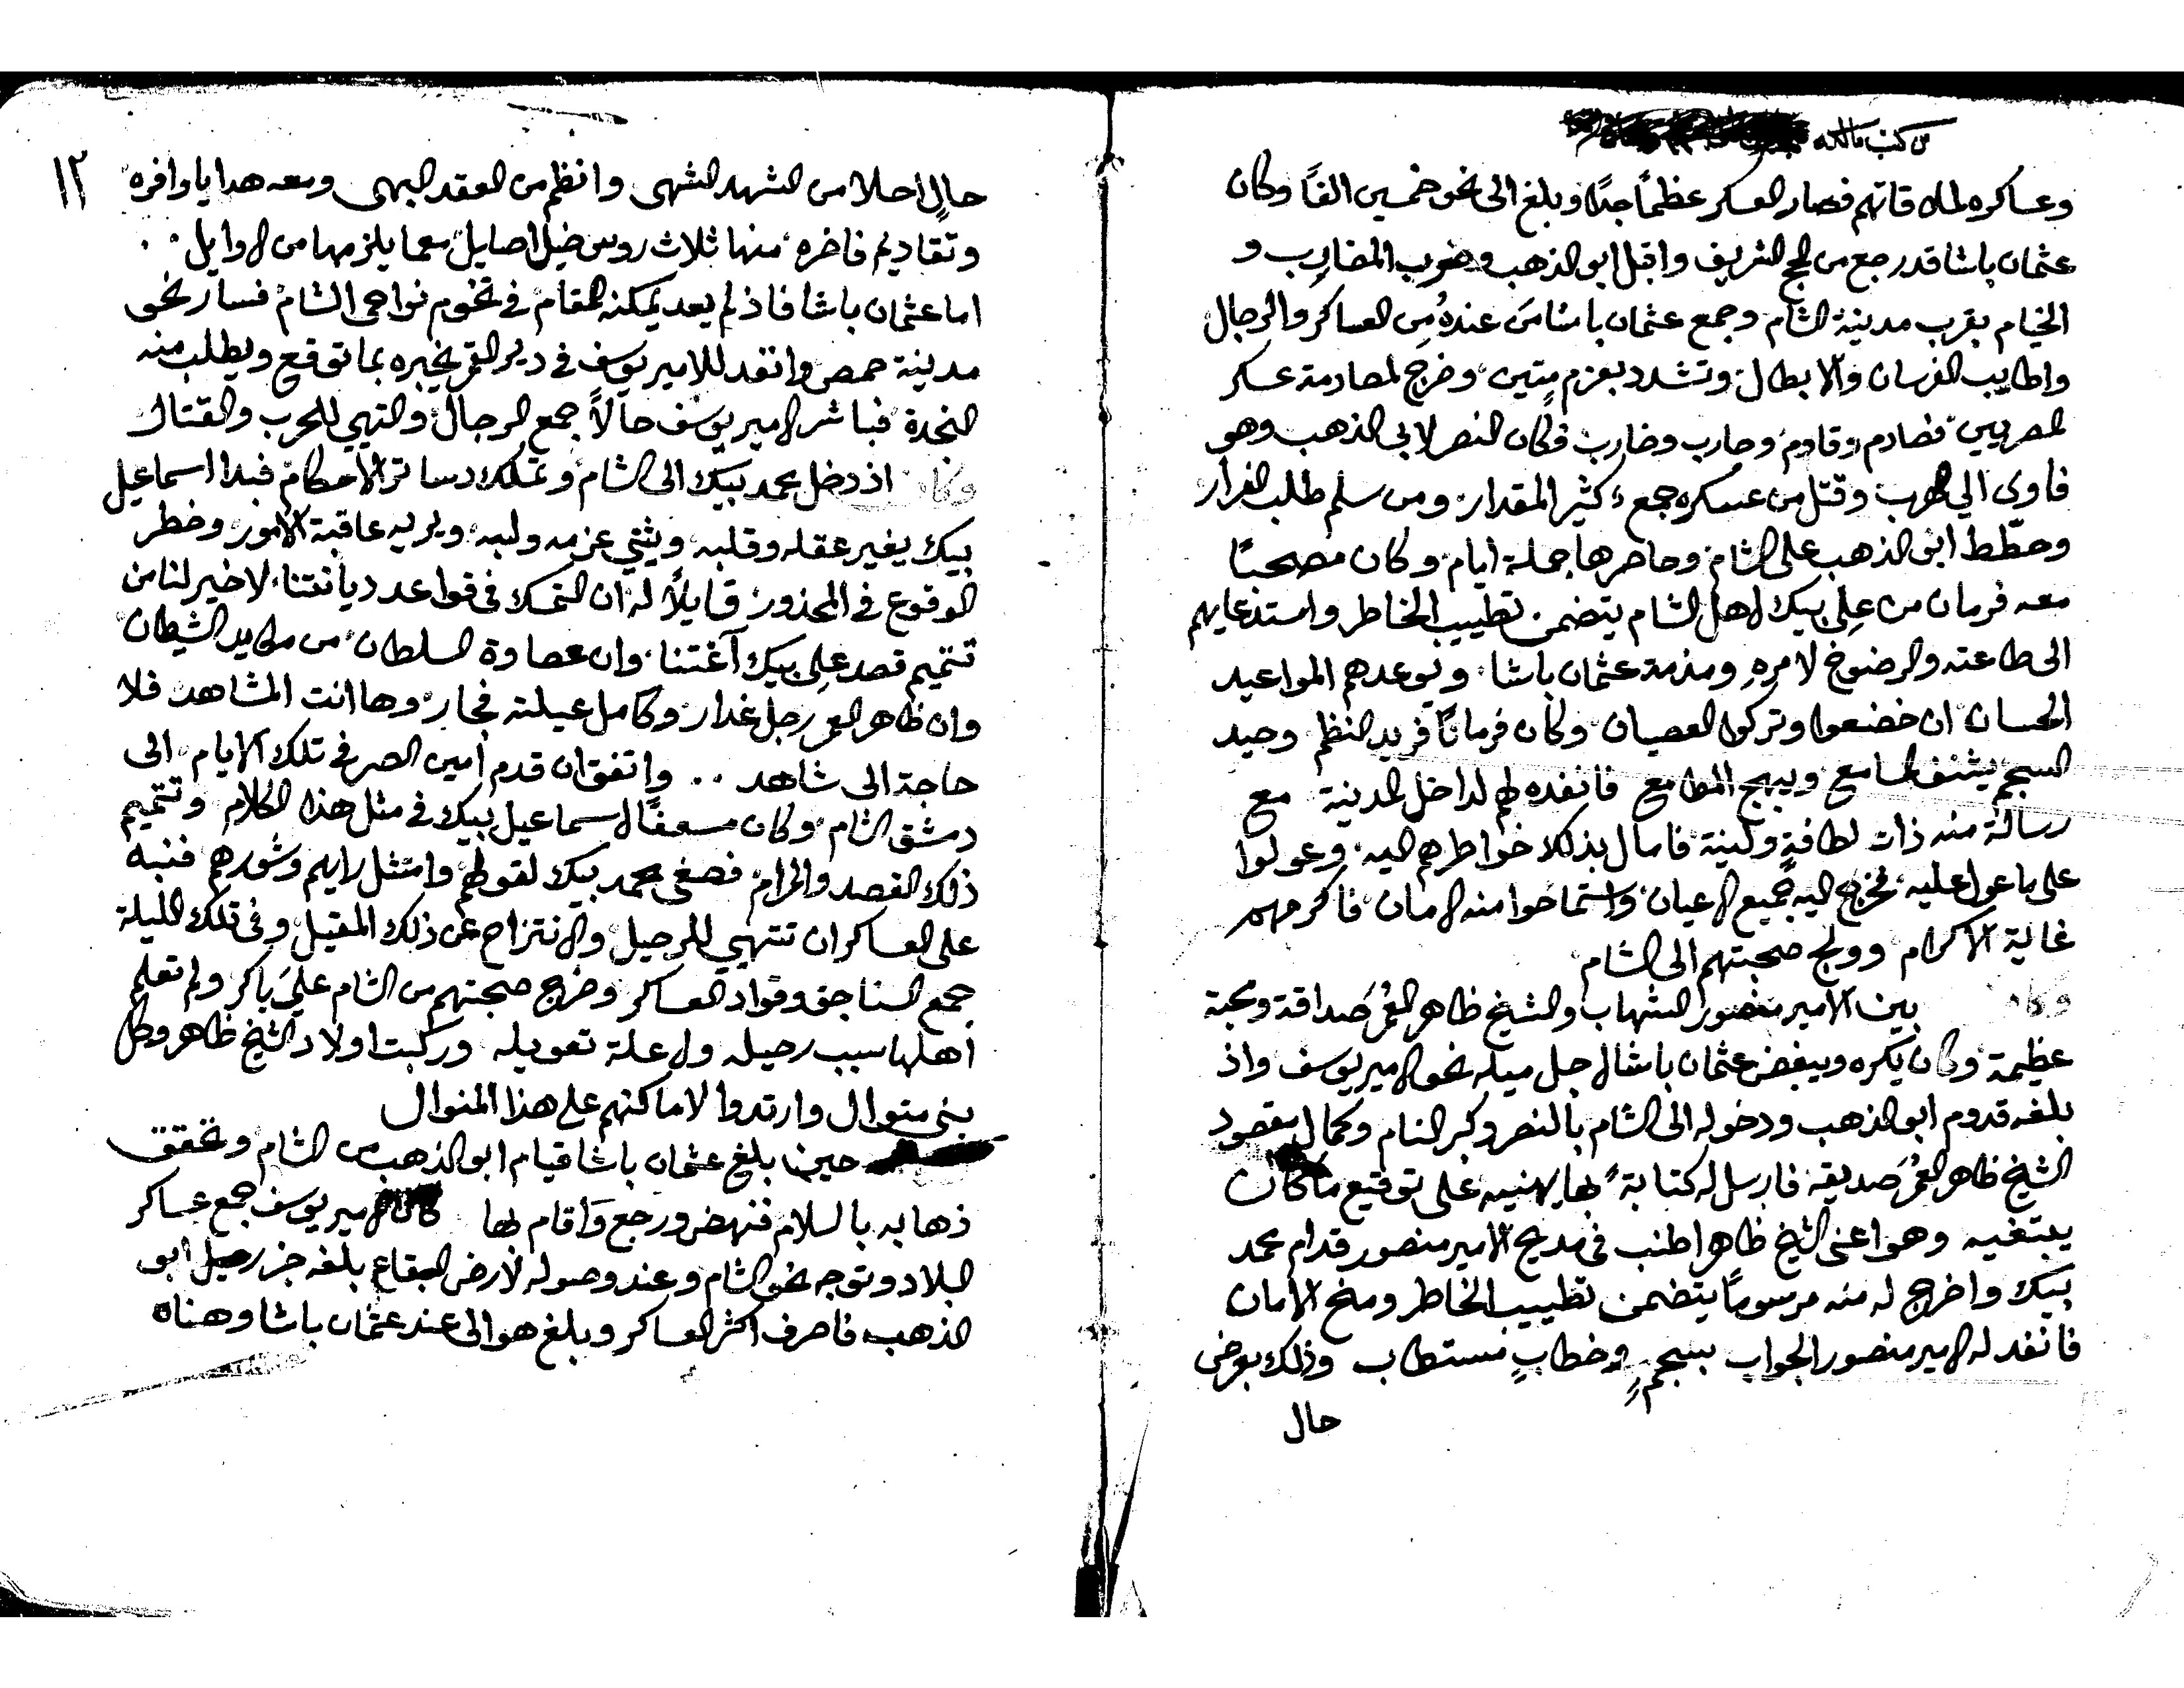 من كتب مالكه
وعساكره لملاقاتهم فصار العسكر عظيمًا جدًا وبلغ الى نحو خمسين الفًا وكان
عثمان باشا قد رجع من الحج الشريف واقبل ابو الذهب وضرب المضارب و
الخيام بقرب مدينة الشام وجمع عثمان باشا مَن عندهُ مِن العساكر والرجال
واطايب الفرسان والابطال وتشدد بعزم متين وخرج لمصادمة عسكر
المصريين فصادم وقاوم وحارب وضارب فكان النصر لابي الذهب وهو
فاوى الي الهرب وقتل من عسكره جمع كثير المقدار ومن سلم طلب الفرار
وحطّط ابو الذهب على الشام وحاصرها جملة ايام وكان مصحبًا
معه فرمان من علي بيك لاهل الشام يتضمن تطييب الخاطر واستدعايهم
الى طاعته والرضوخ لامرهِ ومذمة عثمان باشا ويوعدهم المواعيد
الحسان ان خضعوا وتركوا العصيان وكان فرمانًا فريد النظم وحيد
السجم يشنف المسامع ويبهج المطامع فانفده لهم لداخل المدينة مع
رسالة منه ذات لطافةٍ ولينة فامال بذلك خواطرهم اليه وعولوا
على ما عول عليه فخرج اليه جميع الاعيان واستماحوا منه الامان فاكرمهم
غاية الاكرام وولج صحبتهم الى الشام
وكان بين الامير منصور الشهاب والشيخ ظاهر العُمر صَداقة ومحبة
عظيمة وكان يكره ويبغض عثمان باشا لاجل ميله نحو الامير يوسف واذ
بلغه قدوم ابو الذهب ودخوله الى الشام بالنصر وكبر النام وكمال مقصود
الشيخ ظاهر العُمر صَديقه فارسل له كتابةً بها يهنيه على توقيع ما كان
يبتغيه وهو اعني الشيخ ظاهر اطنب في مديح الامير منصور قدام محمد
بيك واخرج له منه مرسومًا يتضمن تطييب الخاطر ومنح الامان
فانفد له الامير منصور الجواب بسجمٍ وخطابٍ مستطاب وذلك بعرض
حال
١٢
حالٍ احلا من الشهد الشهى وانظم من العقد البهى ومعه هدايا وافره
وتقاديم فاخره منها ثلاث روس خيل اصايل معما يلزمها من الاوايل
اما عثمان باشا فاذ لم يعد يمكنه المقام في تخوم نواحي الشام فسار نحو
مدينة حمص وانفد للامير يوسف في دير القمر يخبره بما توقع ويطلب منه
النجدة فباشر الامير يوسف حالاً جمع الرجال والتهيي للحرب والقتال
وكان اذ دخل محمد بيك الى الشام وتملك دساتر الاحكام فبدا اسماعيل
بيك يغير عقله وقلبه ويثني عزمه ولبه ويريه عاقبة الامور وخطر
الوقوع في المحذور قايلاً له ان التمسك في قواعد ديانتنا لا خير لنا من
تتميم قصد علي بيك آغتنا وان عصاوة السلطان من مكايد الشيطان
وان ظاهر العمر رجل غدار وكامل عيلته فجار وها انت المشاهد فلا
حاجة الى شاهد .. واتفق ان قدم امين الصر في تلك الايام الى
دمشق الشام وكان مسعفًا لاسماعيل بيك في مثل هذا الكلام وتتميم
ذلك القصد والمرام فصغى محمد بيك لقولهم وامتثل رايهم وشورهم فنبه
على العساكر ان تتهيي للرحيل والانتزاح عن ذلك المقيل وفي تلك الليلة
جمع السناجق وقواد العساكر وخرج صحبتهم من الشام عليَ باكر ولم تعلم
اهلها سبب رحيله ولا علة تعويله وركبت اولاد الشيخ ظاهر وكل
بني متوال وارتدوا لاماكنهم على هذا المنوال
حين بلغ عثمان باشا قيام ابو الذهب من الشام وتحقق
ذهابه بالسلام فنهض ورجع وَاقام لها كان الامير يوسف جمع عساكر
البلاد وتوجه نحو الشام وعند وصوله لارض البقاع بلغه خبر رحيل ابو
الذهب فاصرف اكثر العساكر وبلغ هو الى عند عثمان باشا وهناه